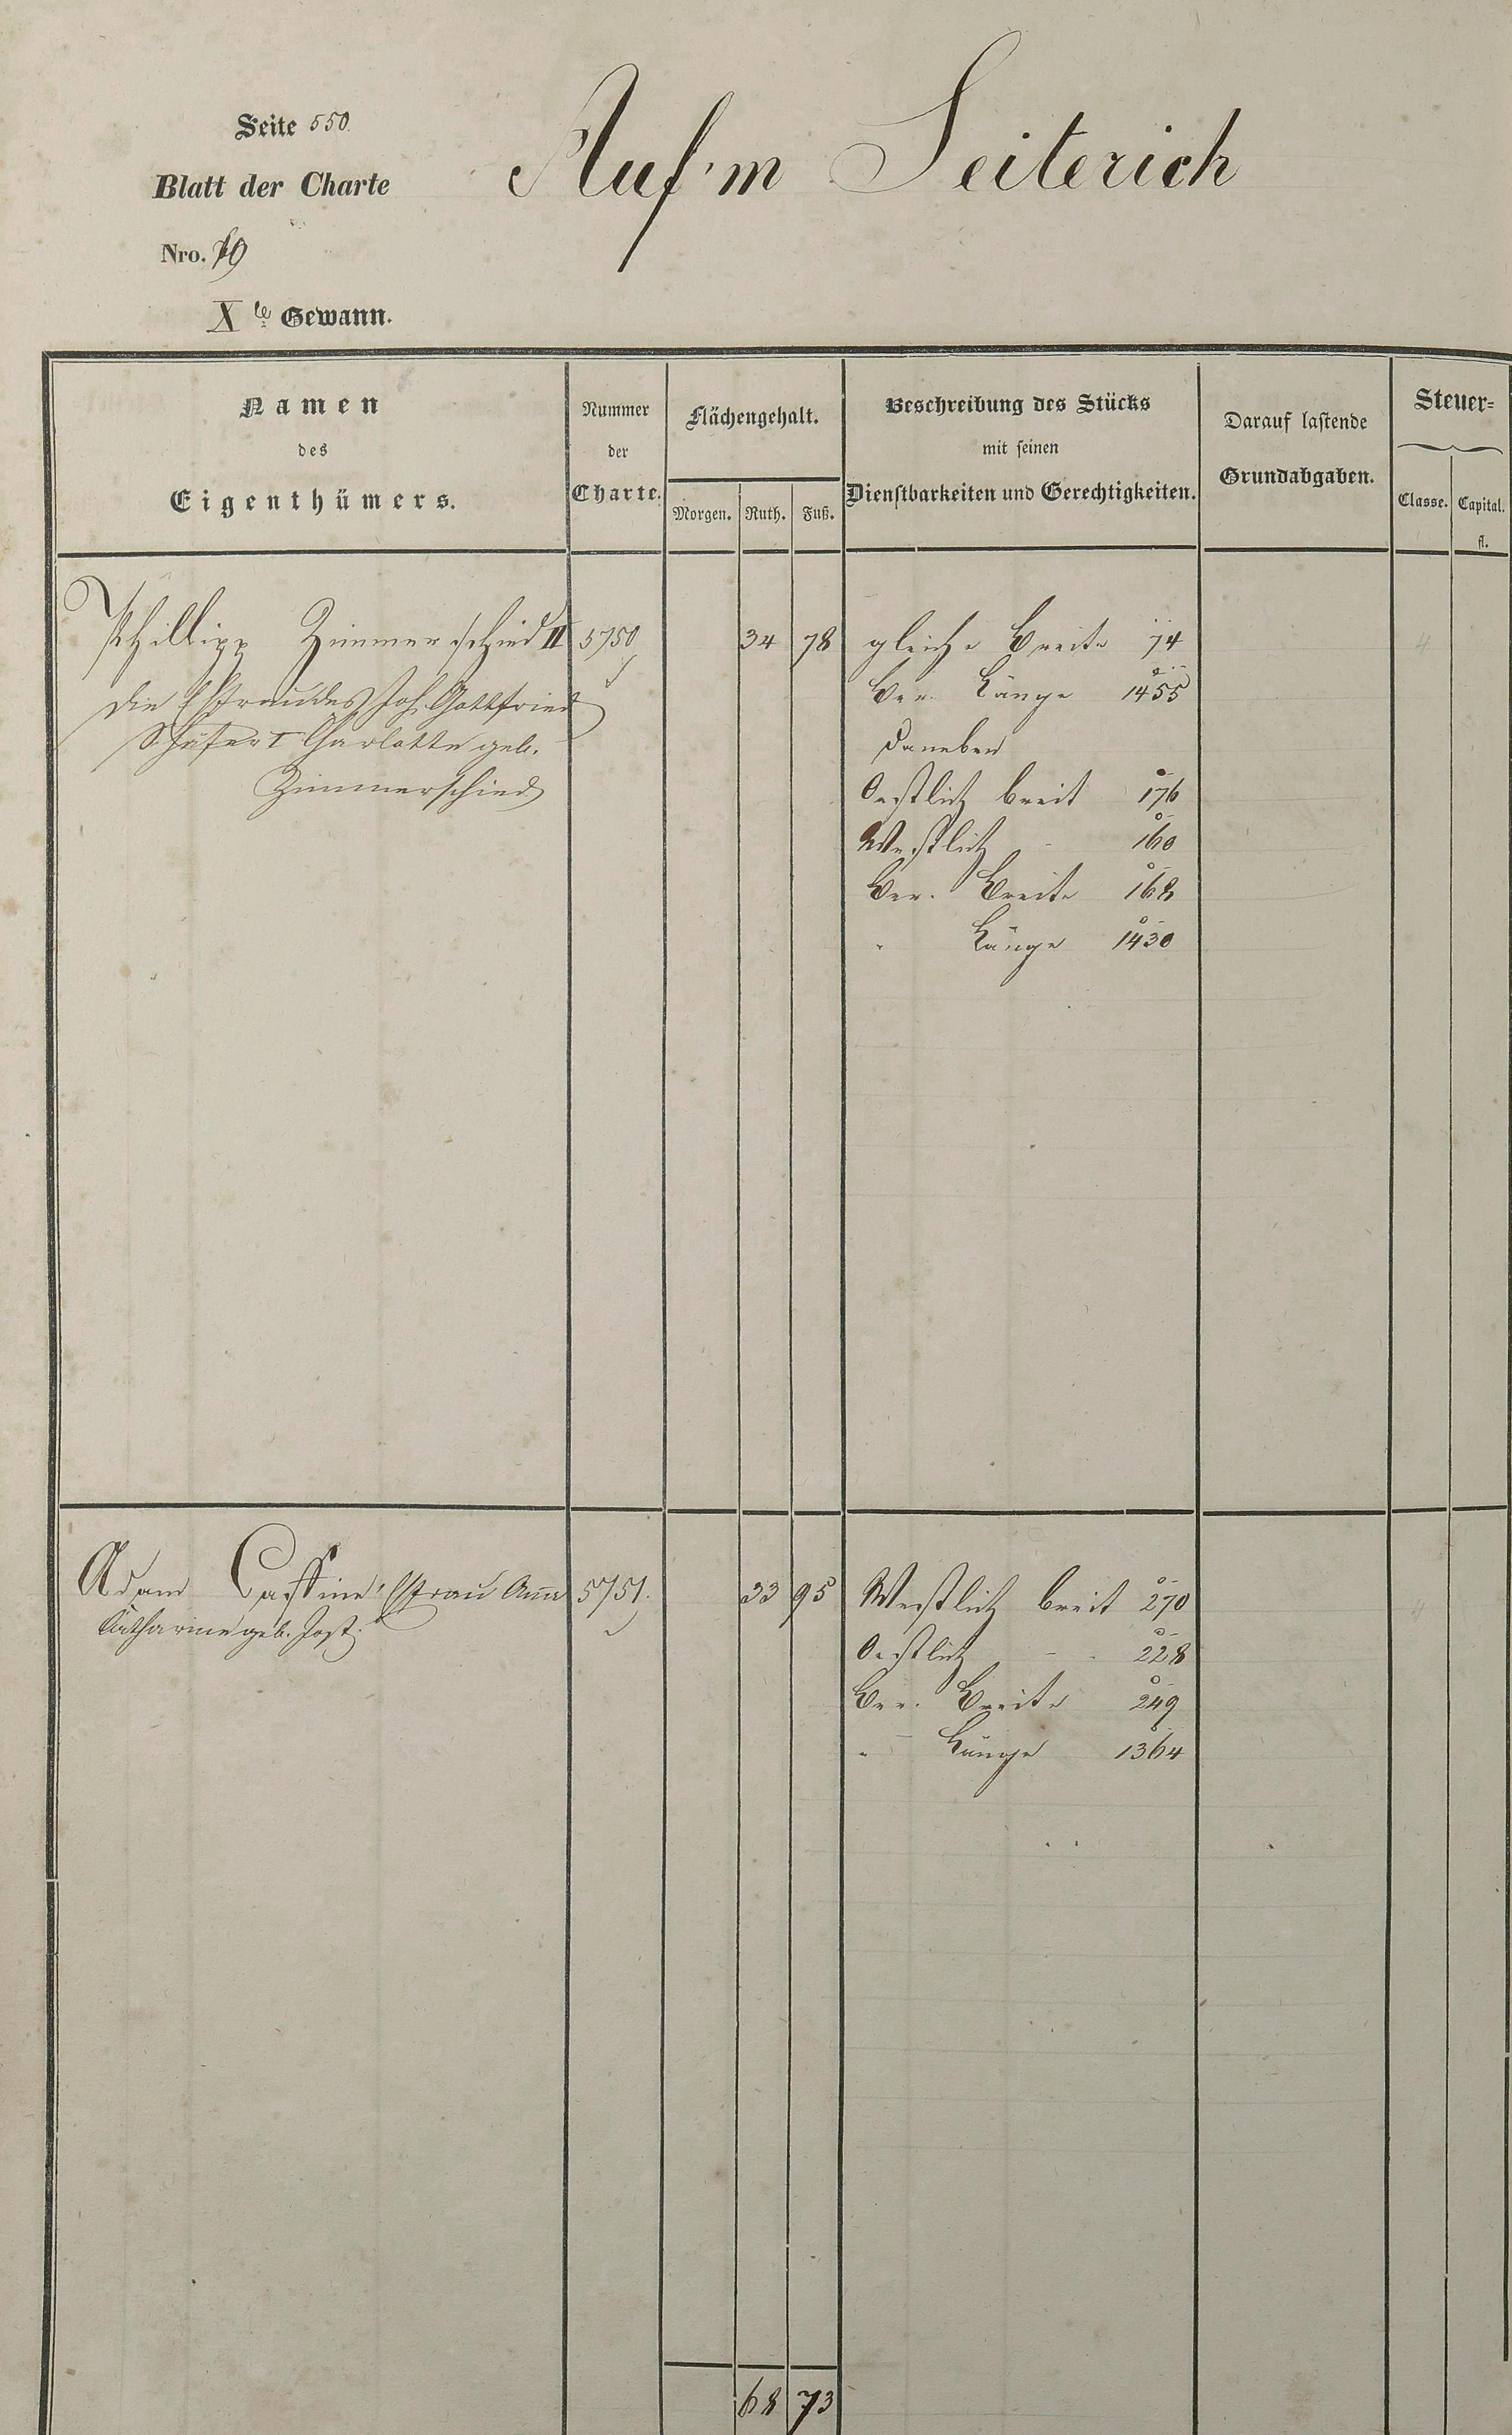 Seite 550
Blatt der Charte
Nro. 79
Xte Gewann.
Auf'm Seiterich
Namen
des
Eigenthümers.
Nummer
der
Charte.
Flächengehalt.
Morgen. Ruth. Fuß.
Beschreibung des Stücks
mit seinen
Dienstbarkeiten und Gerechtigkeiten.
Darauf lastende
Grundabgaben.
Steuer=
Classe. Capital.
fl.
Phillipp Zimmerschied II 5750 34 78 gleiche Breite 74
die Ehfrau des Joh. Gottfried
Schäfer I Charlotte geb.
Zimmerschied
Ber. Länge 1455
Daneben
Oestlich breit 176
Westlich - 160
Ber. Breite 168
" Länge 1430
4
Adam Cassine's Ehfrau Anna 5751. 33 95 Westlich breit 270
Katharine geb. Jost.
Oestlich - - 228
Ber. Breite 249
" Länge 1364
4
68 73